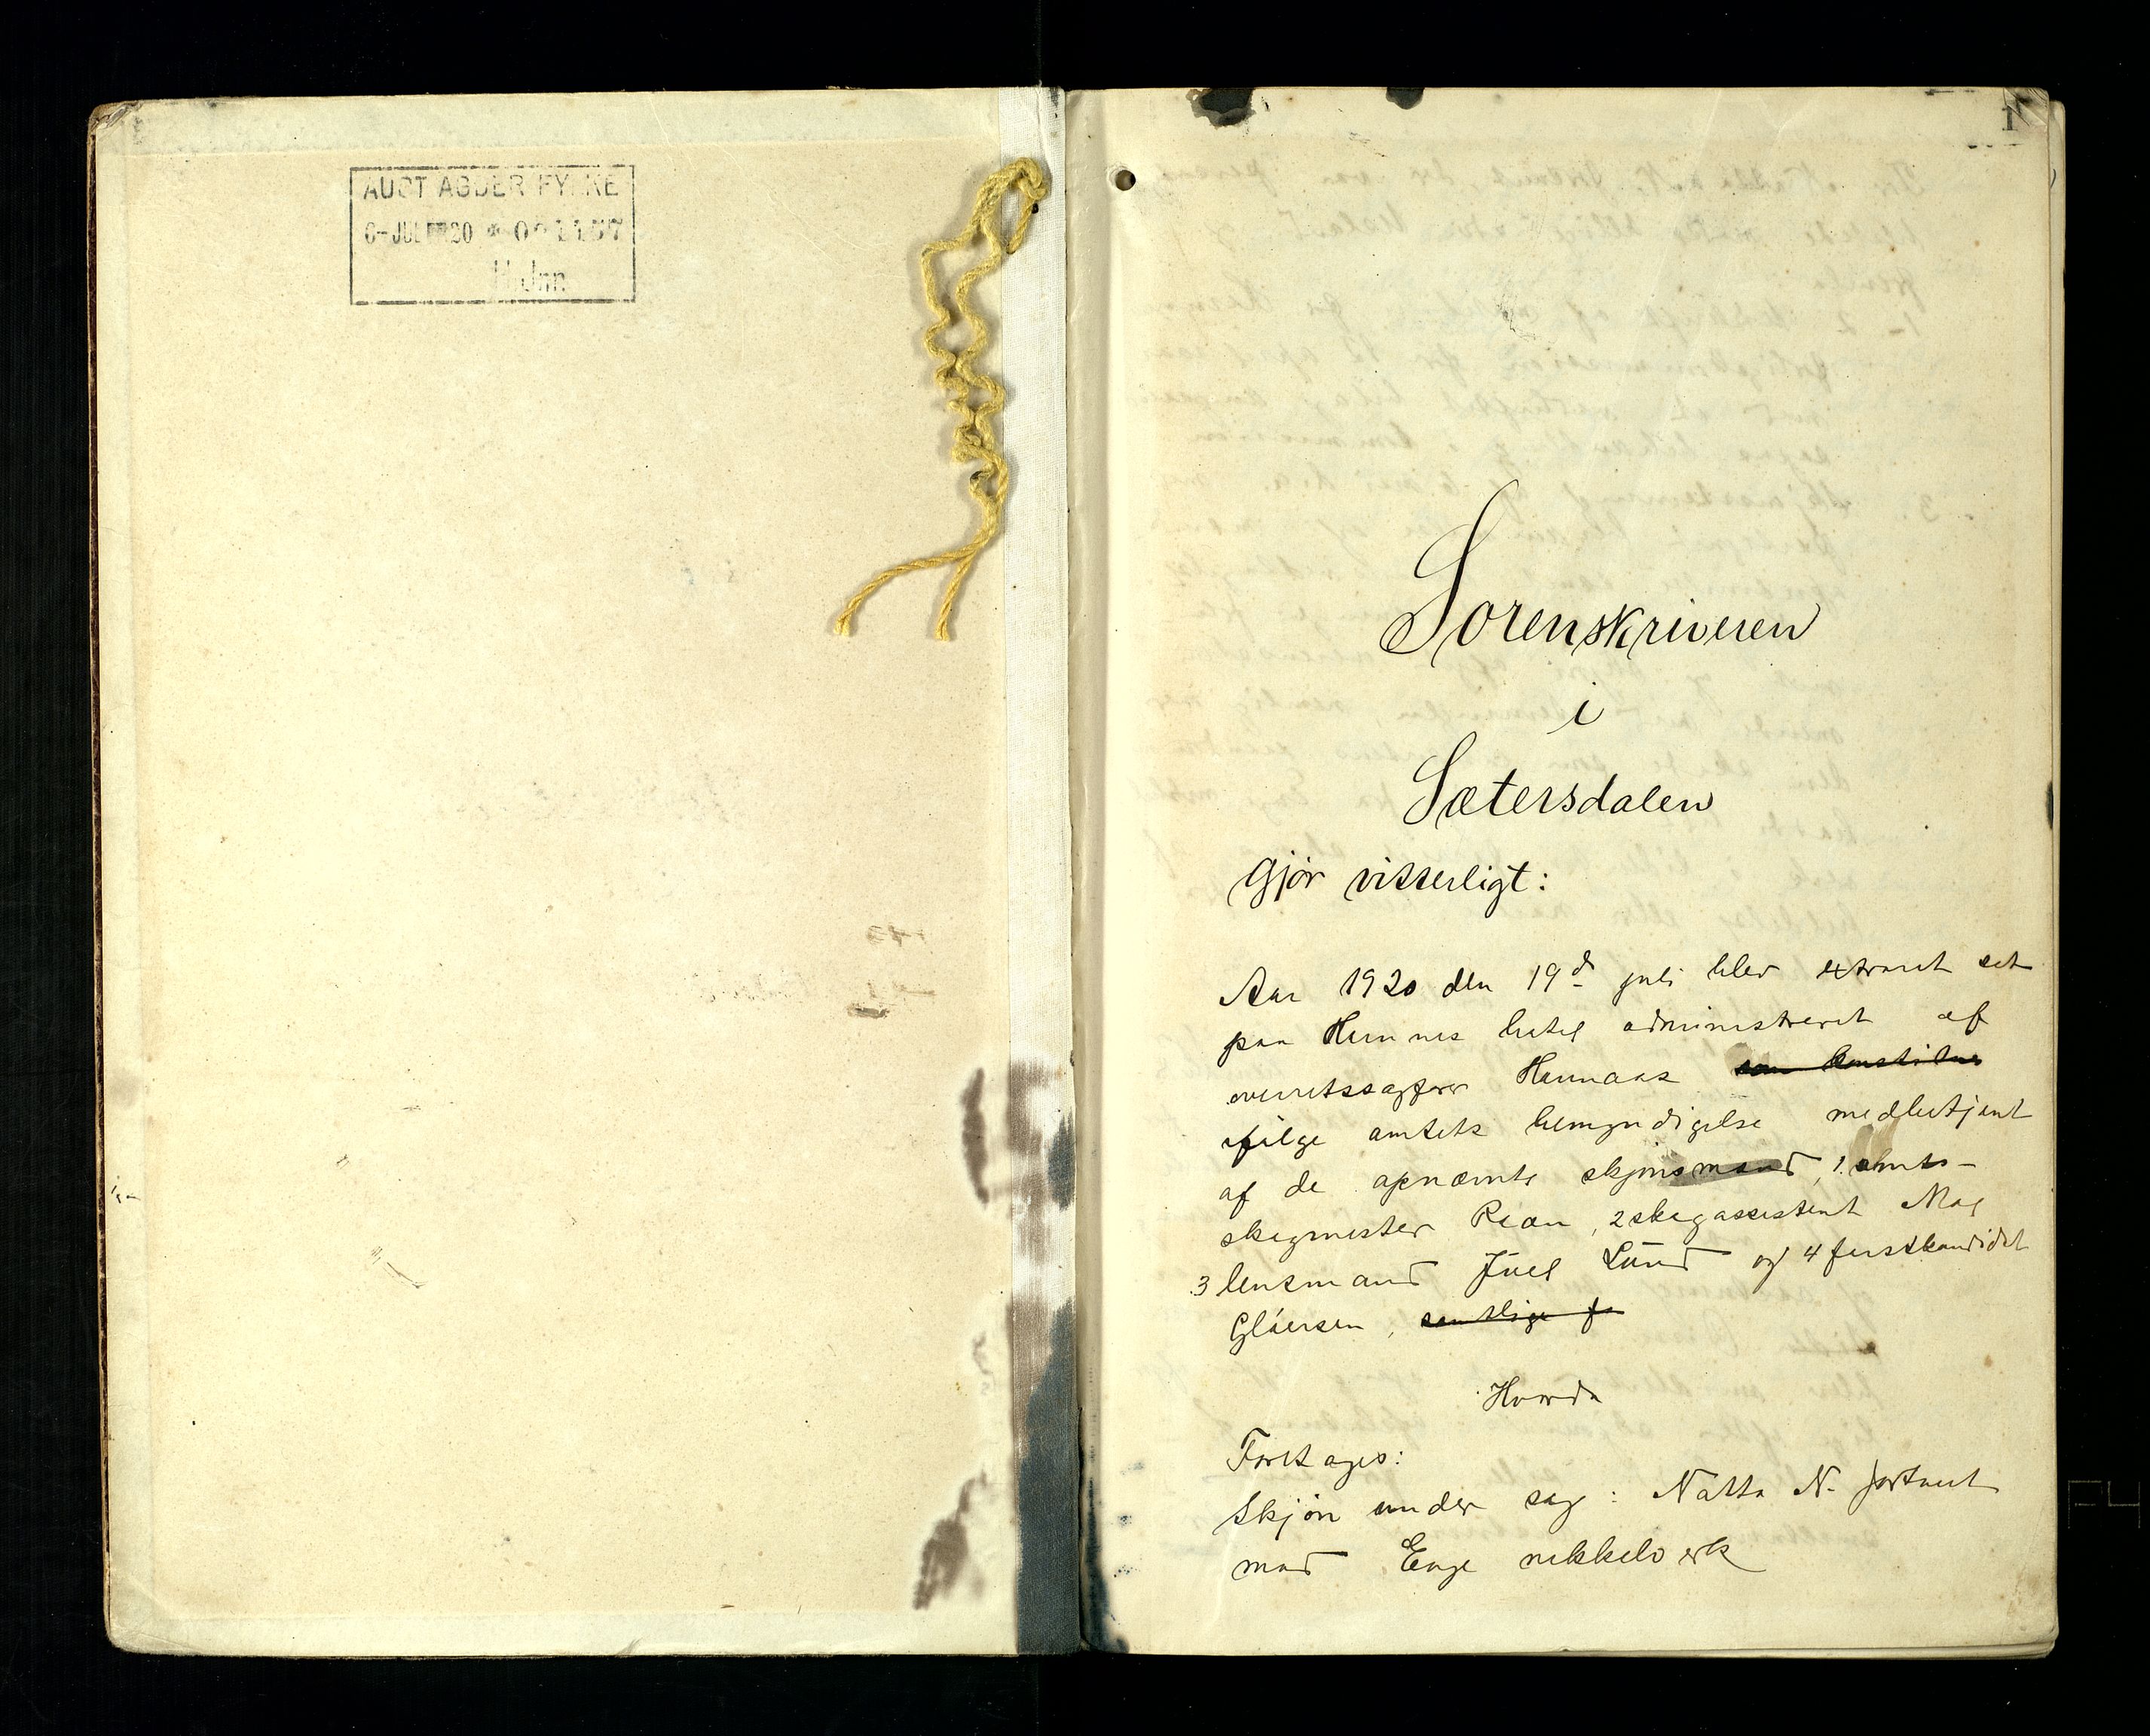 AUST AGDER FYLKE
6-JUL 20
H.Jnr.
1
Sorenskriveren
i
Sætersdalen
Gjør vitterligt:
Aar 1920 den 19de juli blev extraret sat
paa Hunnes hotel administreret af
overretssagfører Hannaas som konstitue
ifølge amtets bemyndigelse medbetjent
af de opnævnte skjønsmænd, 1. amts-
skogmester Ræn, 2 skogassistent Moe
3 lensmand Juel Lund og 4 forstkandidat
Gløersen, samtlige fr
Hvorda
Foretages:
Skjøn under sag: Natta N. Jortveit
mod Evje nikkelverk